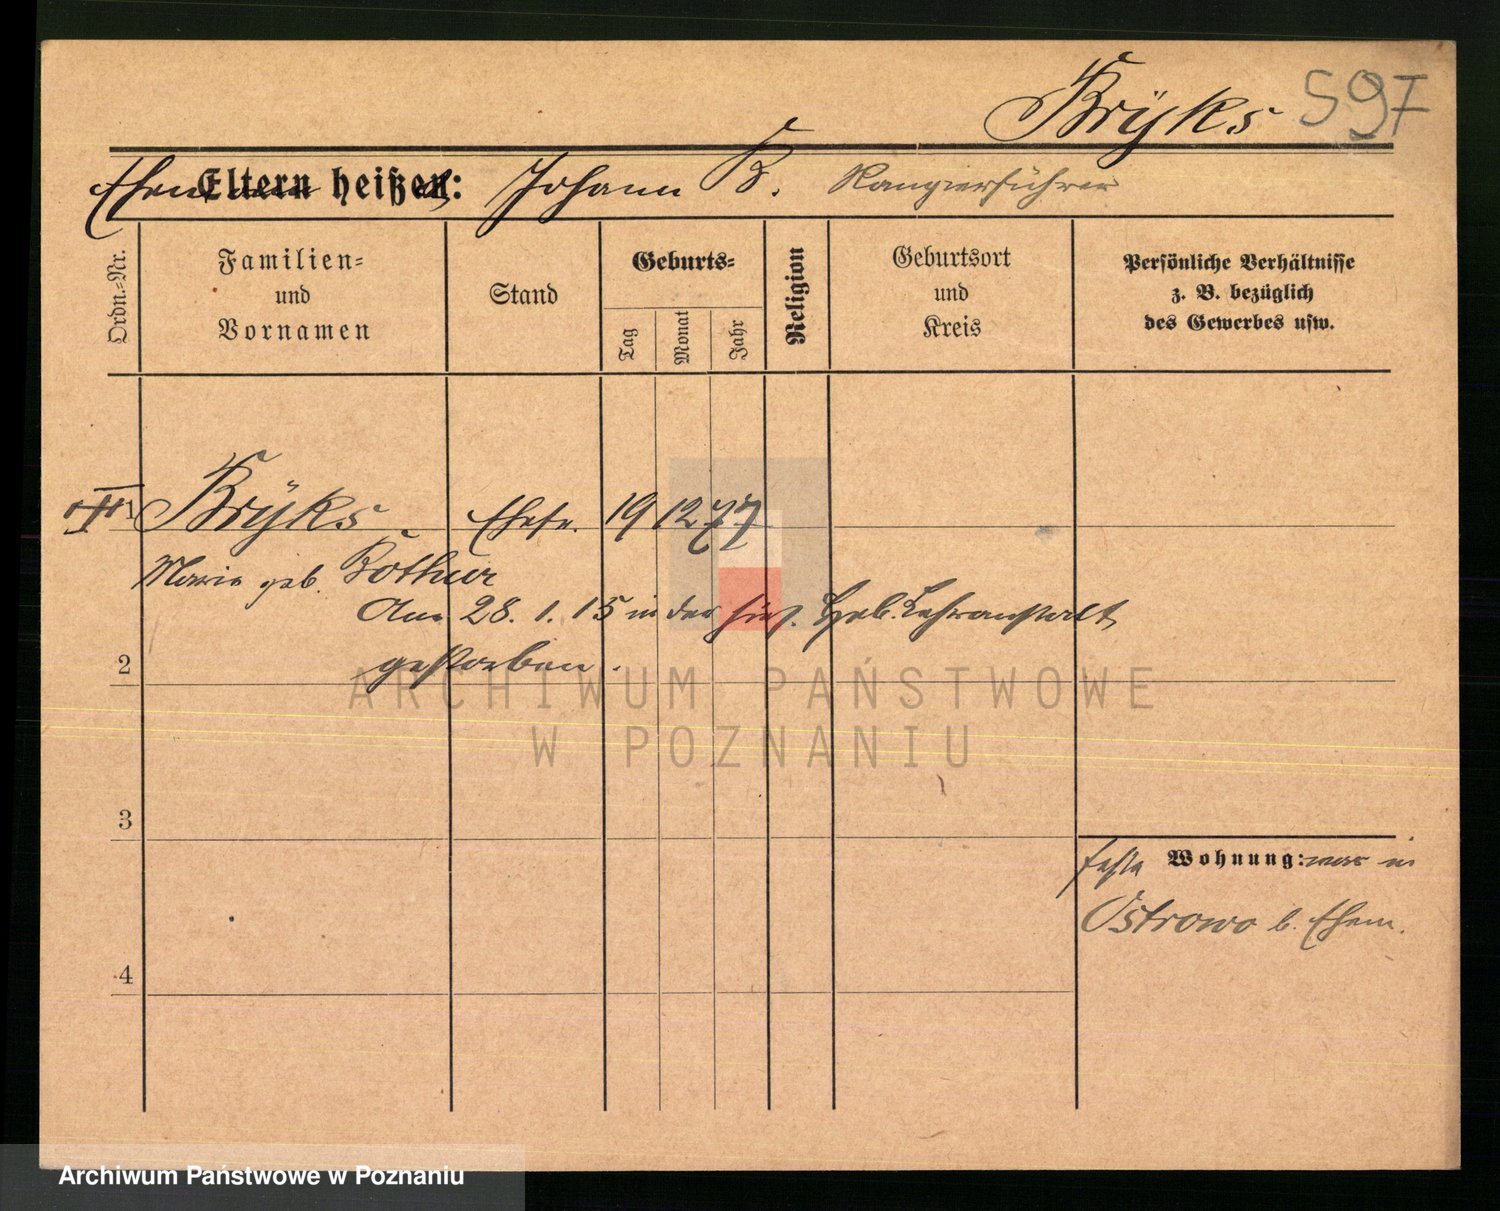 Brÿks 597
Eltern heißen: Johann B. Rangierführer
Ordn.-Nr.
Familien-
und
Vornamen
Stand
Geburts-
Tag
Monat
Jahr
Religion
Geburtsort
und
Kreis
Persönliche Verhältnisse
z. B. bezüglich
des Gewerbes usw.
1 Brÿks Ehefr. 19 12 77
Marie geb. Kothur
Am 28. 1. 15 in der hies. Heb. Lehranstalt
gestorben.
2
3
4
feste Wohnung: war in
Ostrowo b. Ehem.
ARCHIWUM PAŃSTWOWE
W POZNANIU
Archiwum Państwowe w Poznaniu